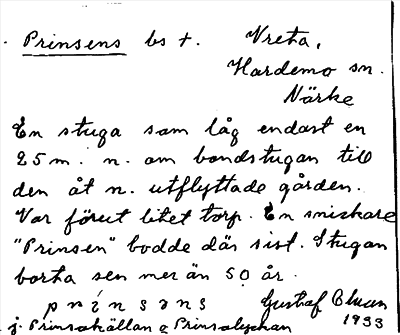 Prinsens bs t. Vreta,
Hardemo sn.
Närke
En stuga som låg endast en
25 m. n. om bondstugan till
den åt n. utflyttade gården.
Var förut litet torp. En sniskare
"Prinsen" bodde där sist. Stugan
borta sen mer än 50 år.
prinsəns Gustaf
j. Prinsakällan o Prinsalyckan 1933